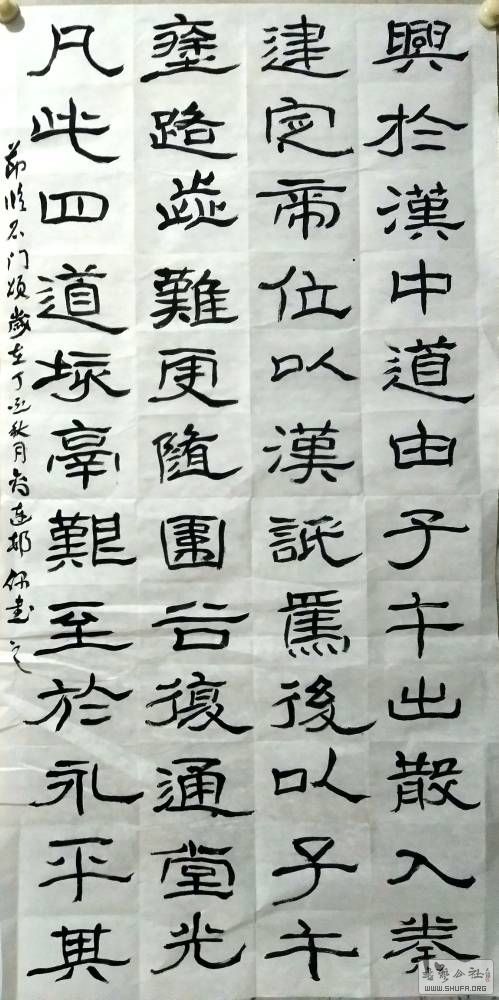 興於漢中道由子午出散入秦
建定帝位以漢詆焉後以子午
塗路歰難更隨圍谷復通堂光
凡此四道垓鬲艱至於永平其
節臨石门頌歲在丁酉秋月
书艺公社
WWW.SHUFA.ORG